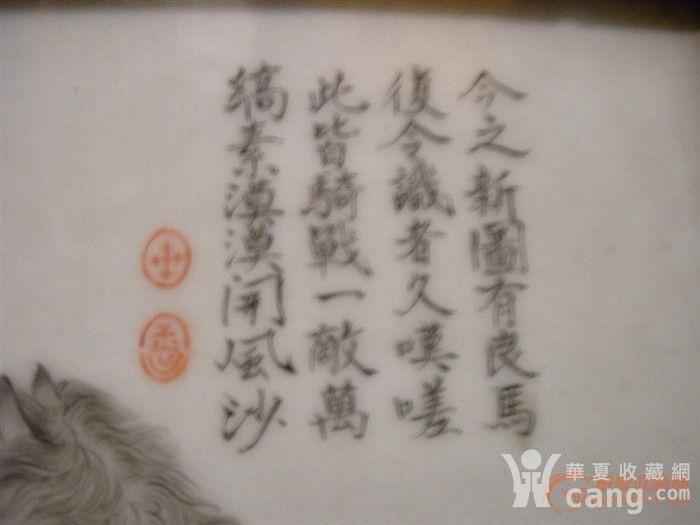 今之新圖有良馬
復令識者久嘆嗟
此皆騎戰一敵萬
縞素漠漠開風沙
華夏收藏網
cang.com